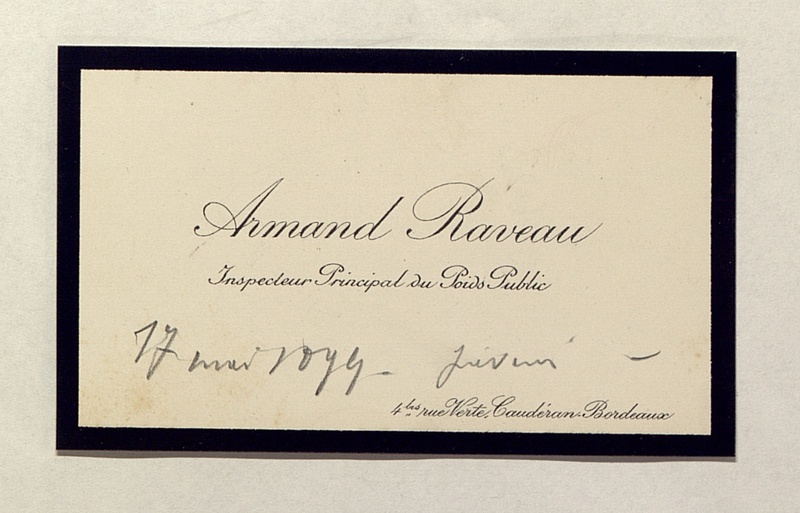 Armand Raveau
Inspecteur Principal du Poids Public
17 mai 1899 -
4bis rue Verte, Caudéran-Bordeaux